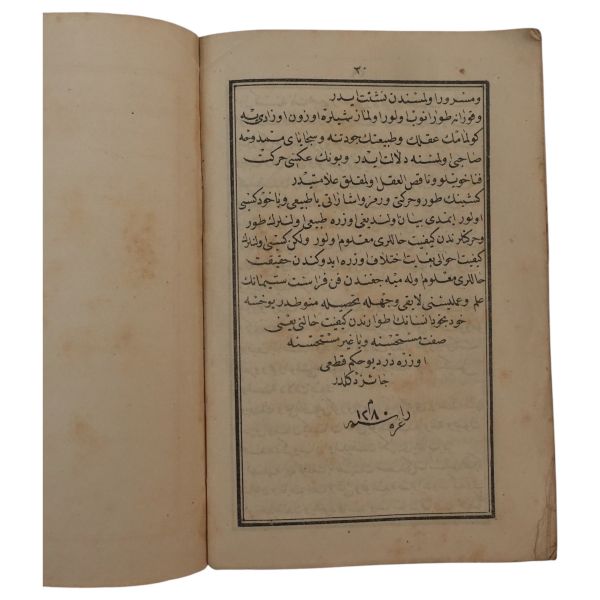 ٣٠
ومسرور اولمسندن نشئت ايدر
وقوزانه طورانوب اولور اولماز شيلره اوزون اوزادى يه
كولمامك عقلك وطبيعتك جودتنه وسجاياى ممدوحه
صاحبى اولمسنه دلالت ايدر وبونك عكسى حركت
فاخويلو وناقص العقل اولمقلق علامتيدر
كشينك طور وحركتى ورمز واشاراتى يا طبيعى وياخود كسبى
اولور ايمدى بيان اولنديغى اوزره طبيعى اولنلرك طور
وحركتلرندن كيفيت حاللرى معلوم اولور ولكن كسبى اولنلرك
كيفيت احوالى بغايت اختلاف اوزره ايدوكندن حقيقت
حاللرى معلوم اوله ميه جغندن فن فراست ستيمانك
علم وعمليسنى لايقى وجهله تحصيله منوطدر يوخسه
خود بخود انسانك طوارندن كيفيت حالنى يعنى
صفت مستحسنه ويا غير مستحسنه
اوزره در ديو حكم قطعى
جائز دكلدر
غره را سنه ١٢٨٠
م